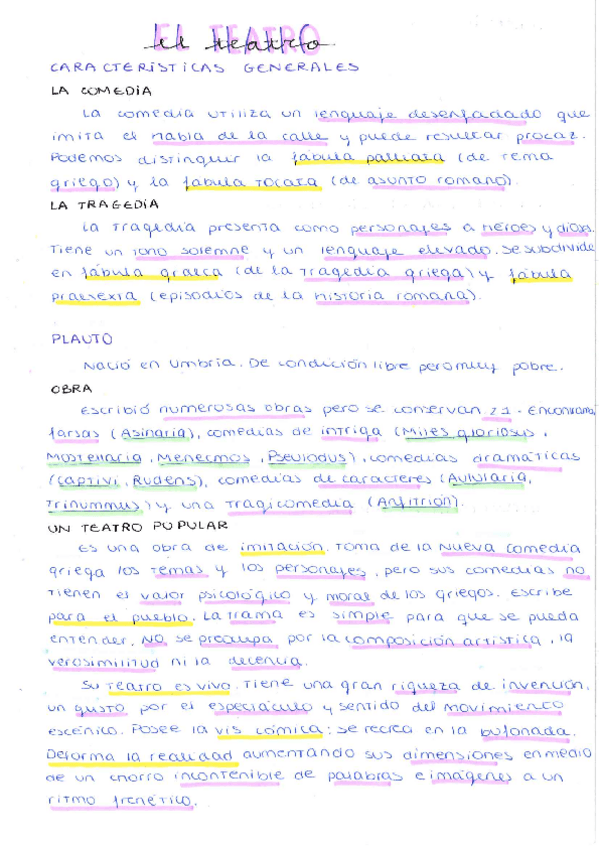 EL TEATRO
CARACTERÍSTICAS GENERALES
LA COMEDIA
La comedia utiliza un lenguaje desenfadado que
imita el habla de la calle y puede resultar procaz.
Podemos distinguir la fabula palliata (de tema
griego) y la fabula tocata (de asunto romano).
LA TRAGEDIA
La tragedia presenta como personajes a héroes y dioses.
Tiene un tono solemne y un lenguaje elevado. Se subdivide
en fábula graeca (de la tragedia griega) y fábula
praetexta (episodios de la historia romana).
PLAUTO
Nació en Umbría. De condición libre pero muy pobre.
OBRA
Escribió numerosas obras pero se conservan 21. Encontramos
farsas (Asinaria), comedias de intriga (Miles gloriosus,
Mostellaria, Menecmos, Pseudodus), comedias dramáticas
(Captivi, Rudens), comedias de caracteres (Aulularia,
Trinummus) y una tragicomedia (Anfitrión).
UN TEATRO POPULAR
Es una obra de imitación. Toma de la Nueva comedia
griega los temas y los personajes, pero sus comedias no
tienen el valor psicológico y moral de los griegos. Escribe
para el pueblo. La trama es simple para que se pueda
entender. No se preocupa por la composición artística, la
verosimilitud ni la decencia.
Su teatro es vivo. Tiene una gran riqueza de invención,
un gusto por el espectáculo y sentido del movimiento
escénico. Posee la vis cómica: se recrea en la bufonada.
Deforma la realidad aumentando sus dimensiones en medio
de un chorro incontenible de palabras e imágenes a un
ritmo frenético.